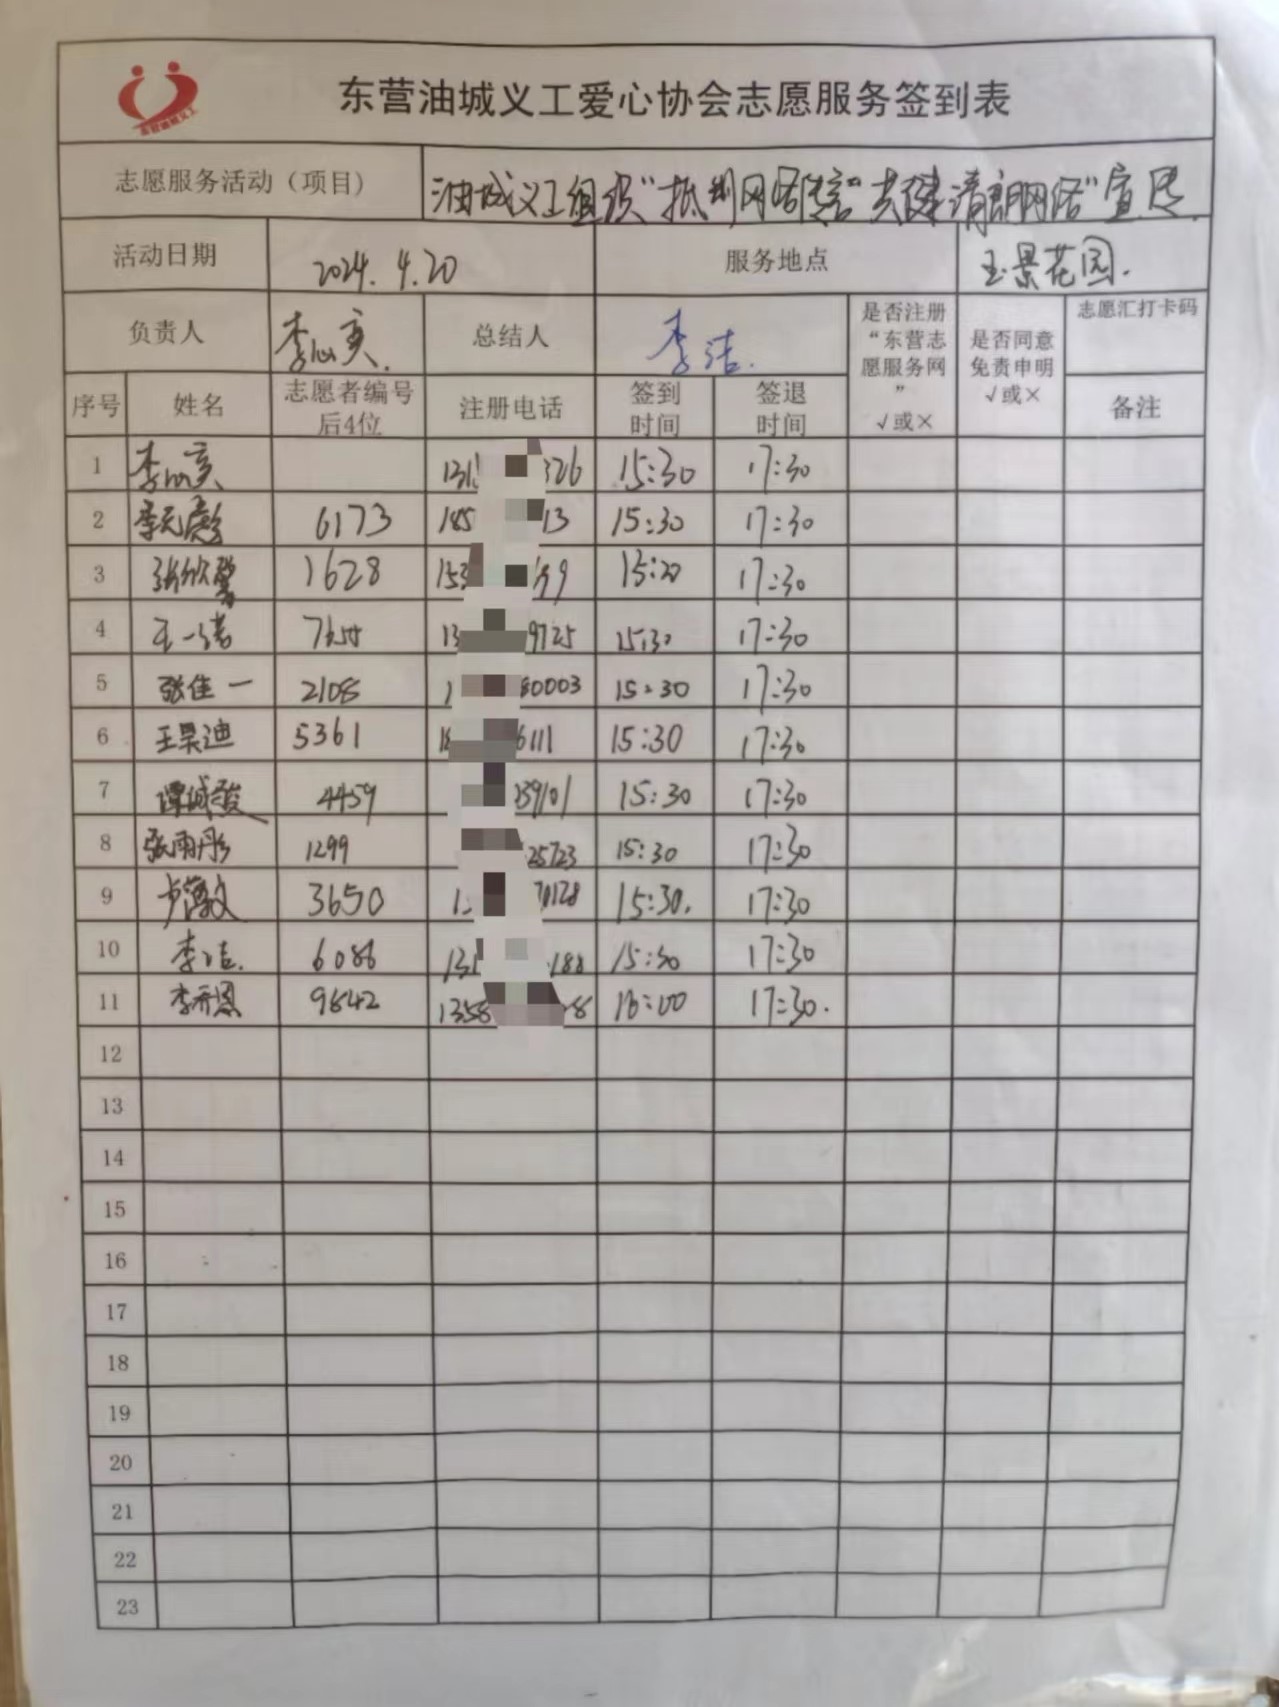 东营油城义工爱心协会志愿服务签到表
志愿服务活动（项目） 油城义工组织“抵制网络谣言”共建清朗网络”宣传.
活动日期 2024.4.20 服务地点 玉景花园.
负责人 李心亥. 总结人 李洁. 是否注册“东营志愿服务网” √或× 是否同意免责申明 √或× 志愿汇打卡码
序号 姓名 志愿者编号后4位 注册电话 签到时间 签退时间 备注
1 李心亥 131 326 15:30 17:30
2 6173 185 13 15:30 17:30
3 张欣馨 1628 153 15:20 17:30
4 王一诺 13 9725 15:30 17:30
5 张佳一 2108 1 80003 15:30 17:30
6 王昊迪 5361 18 6111 15:30 17:30
7 谭城骏 4459 39101 15:30 17:30
8 张雨彤 1299 25723 15:30 17:30
9 3650 1 70128 15:30. 17:30
10 李洁. 6086 131 188 15:30 17:30
11 9642 1358 8 16:00 17:30.
12
13
14
15
16
17
18
19
20
21
22
23